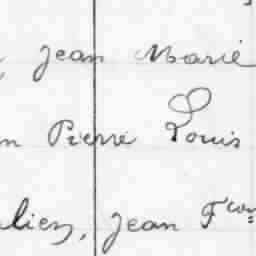 , Jean Marie
n Pierre Louis
lien, Jean Fcois